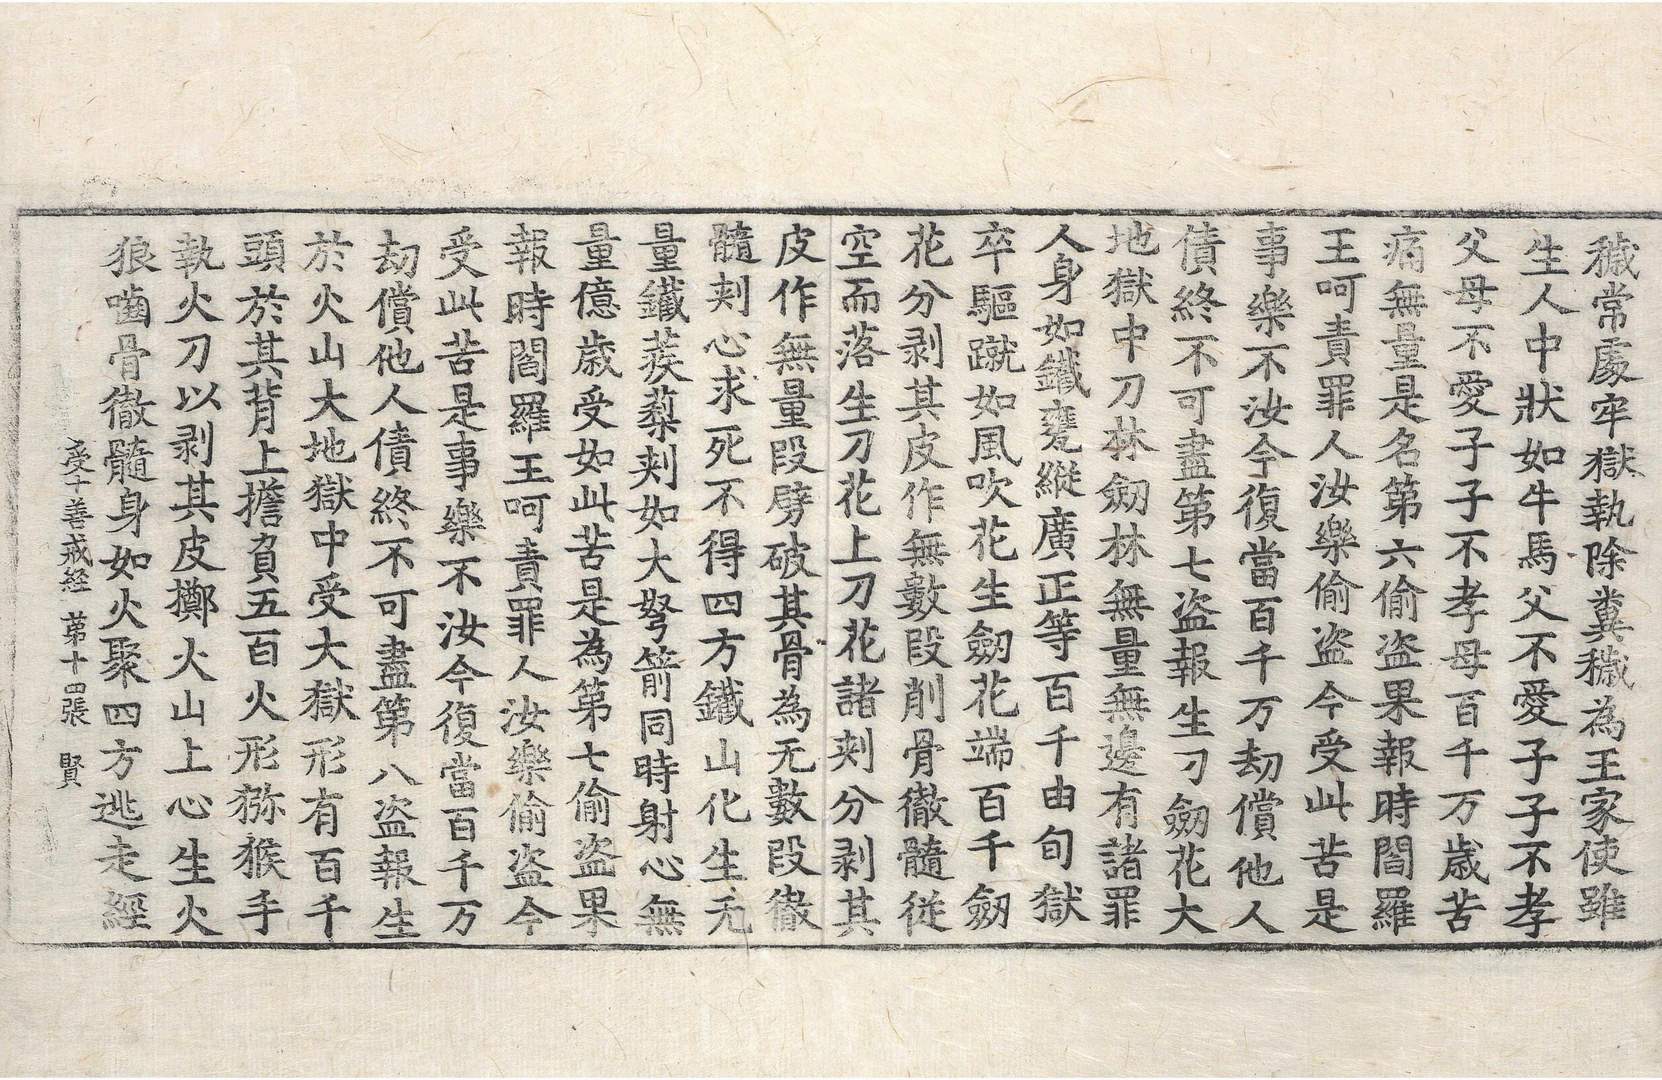 穢常處牢獄執除糞穢為王家使雖
生人中狀如牛馬父不愛子子不孝
父母不愛子子不孝母百千万歲苦
痛無量是名第六偷盗果報時閻羅
王呵責罪人汝樂偷盗今受此苦是
事樂不汝今復當百千万劫償他人
債終不可盡第七盗報生刀劒花大
地獄中刀林劒林無量無邊有諸罪
人身如鐵甕縱廣正等百千由旬獄
卒驅蹴如風吹花生劒花端百千劒
花分剥其皮作無數段削骨徹髓從
空而落生刀花上刀花諸刾分剥其
皮作無量段劈破其骨為无數段徹
髓刾心求死不得四方鐵山化生无
量鐵蒺蔾刾如大弩箭同時射心無
量億歲受如此苦是為第七偷盗果
報時閻羅王呵責罪人汝樂偷盗今
受此苦是事樂不汝今復當百千万
劫償他人債終不可盡第八盗報生
於火山大地獄中受大獄形有百千
頭於其背上擔負五百火形猕猴手
執火刀以剥其皮擲火山上心生火
狼嚙骨徹髓身如火聚四方逃走經
受十善戒経　苐十四張　賢